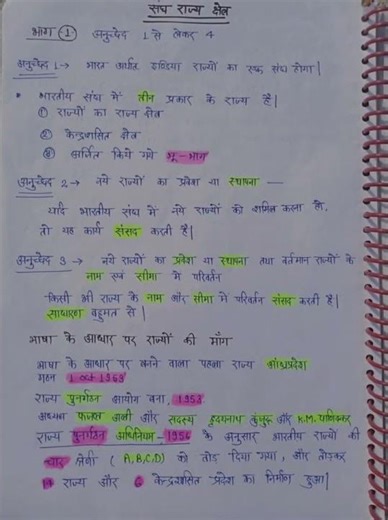 संघ राज्य क्षेत्र
भाग ① अनुच्छेद 1 से लेकर 4
अनुच्छेद 1 → भारत अर्थात इण्डिया राज्यों का एक संघ होगा|
* भारतीय संघ में तीन प्रकार के राज्य है|
① राज्यों का राज्य क्षेत्र
② केन्द्रशासित क्षेत्र
③ अर्जित किये गये भू-भाग
अनुच्छेद 2 → नये राज्यों का प्रवेश या स्थापना —
यदि भारतीय संघ में नये राज्यों को शामिल करना है,
तो यह कार्य संसद करती है|
अनुच्छेद 3 → नये राज्यों का प्रवेश या स्थापना तथा वर्तमान राज्यों के
नाम एवं सीमा में परिवर्तन
-किसी भी राज्य के नाम और सीमा में परिवर्तन संसद करती है|
साधारण बहुमत से |
भाषा के आधार पर राज्यों की माँग
भाषा के आधार पर बनने वाला पहला राज्य आंध्रप्रदेश
गठन 1 oct 1953
राज्य पुनर्गठन आयोग बना, 1953
अध्यक्ष फजल अली और सदस्य हृदयनाथ कुंजरू और K.M. पाणिक्कर
राज्य पुनर्गठन अधिनियम-1956 के अनुसार भारतीय राज्यों की
चार श्रेणी (A,B,C,D) को तोड़ दिया गया, और तोड़कर
14 राज्य और 6 केन्द्रशासित प्रदेश का निर्माण हुआ|